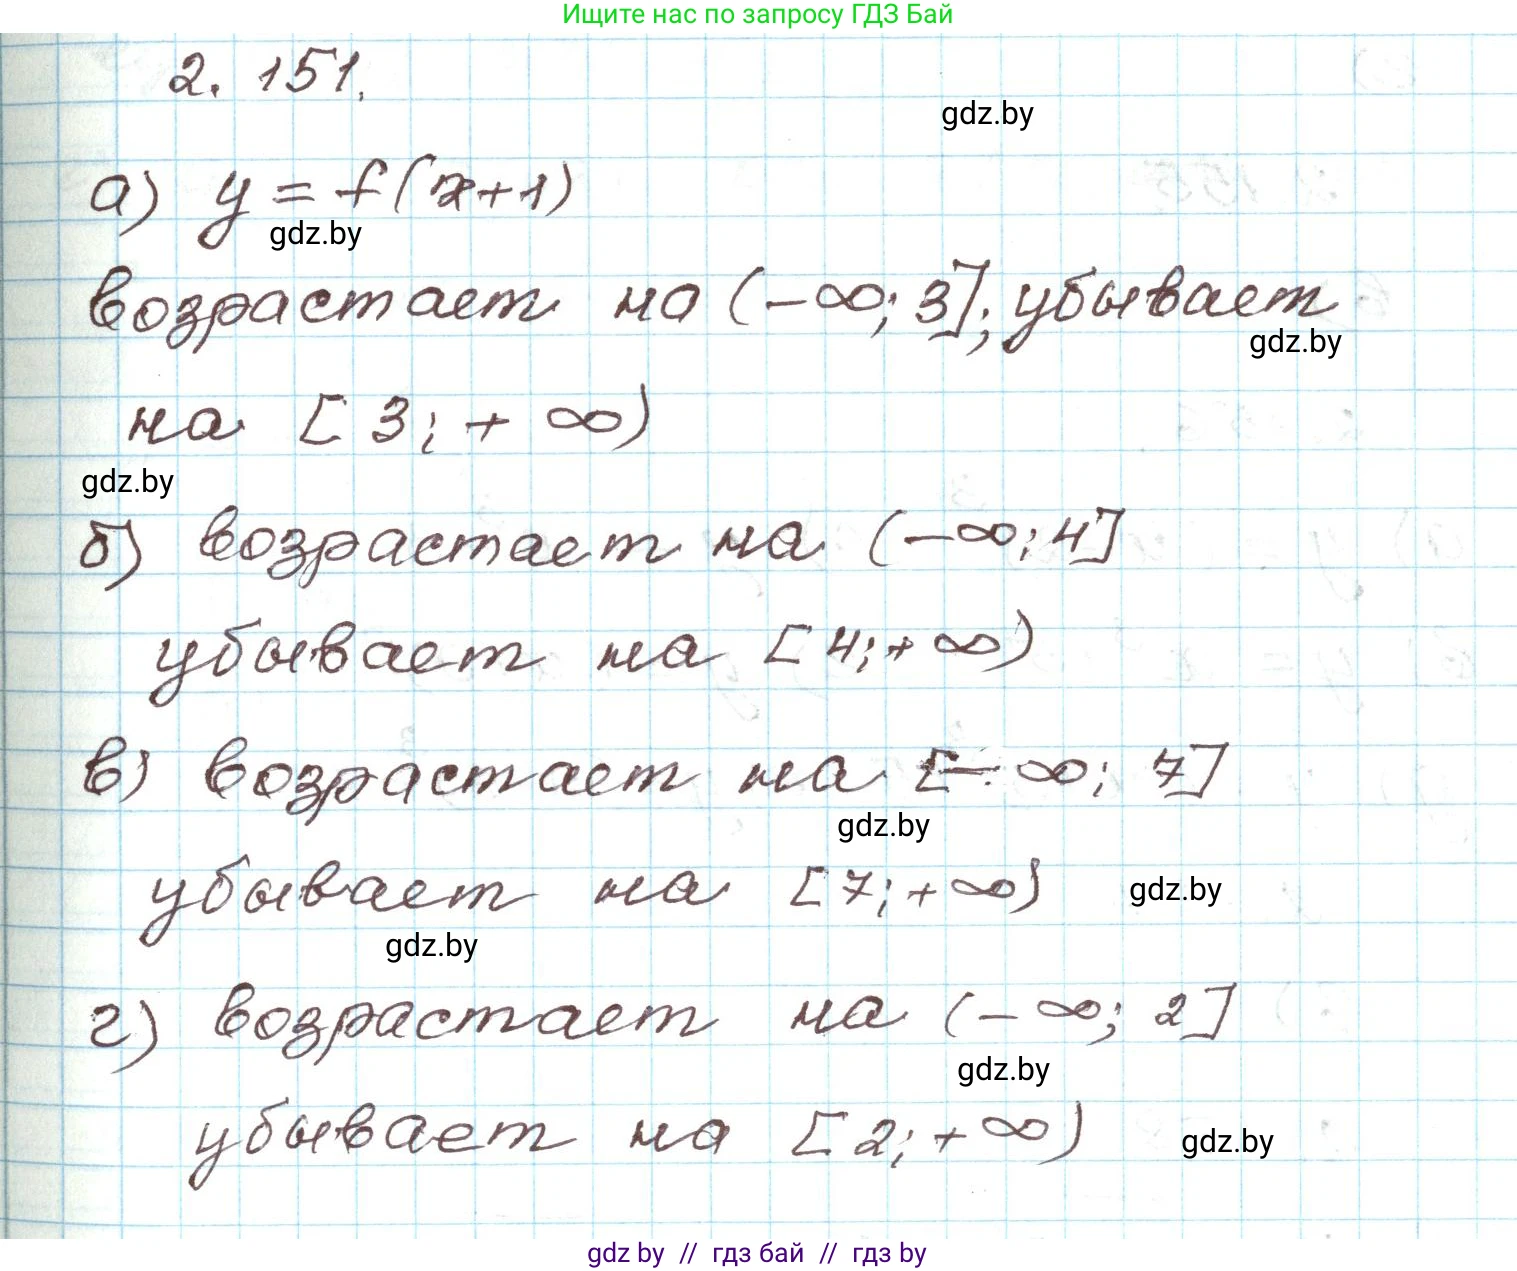 Ищите нас по запросу ГДЗ Бай
2. 151.
gdz.by
а) y = f(x+1)
gdz.by
возрастает на (-∞; 3]; убывает
gdz.by
на [3; + ∞)
gdz.by
б) возрастает на (-∞; 4]
убывает на [4; + ∞)
в) возрастает на [- ∞; 7]
gdz.by
убывает на [7; + ∞)
gdz.by
gdz.by
г) возрастает на (- ∞; 2]
gdz.by
убывает на [2; + ∞)
gdz.by
gdz by // гдз бай // гдз by